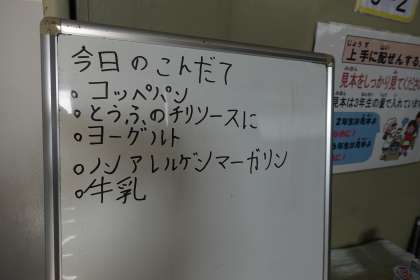 今日のこんだて
○コッペパン
○とうふのチリソースに
○ヨーグルト
○ノンアレルゲンマーガリン
○牛乳
上手に配ぜんする
見本をしっかり見てください
見本は3年生の量で入れています